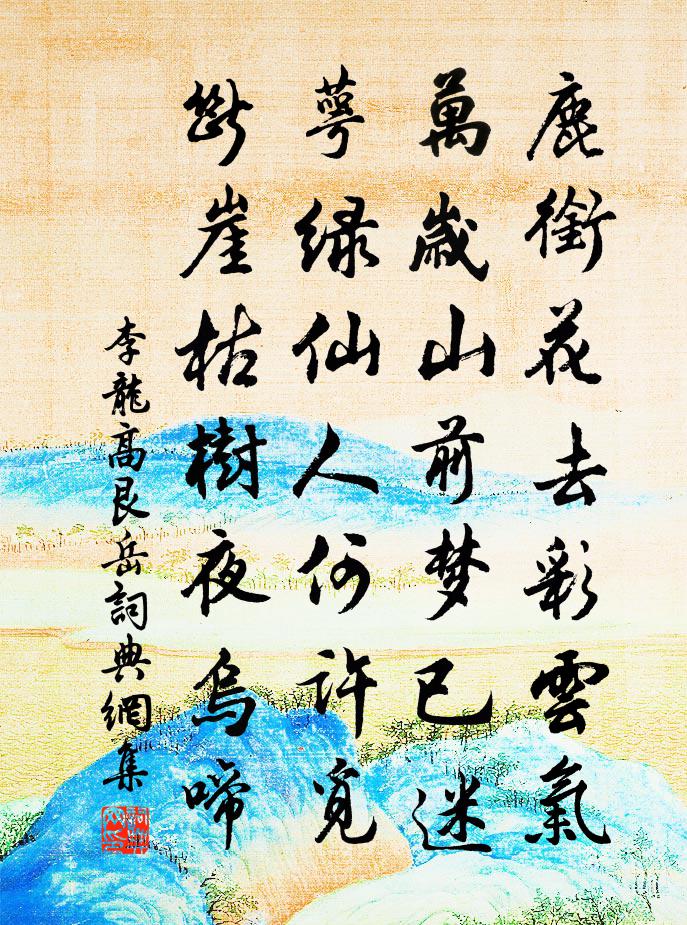 鹿銜花去彩雲氣
萬歲山前梦已迷
萼绿仙人何许覓
斷崖枯樹夜烏啼
李龍高艮岳詞典網集